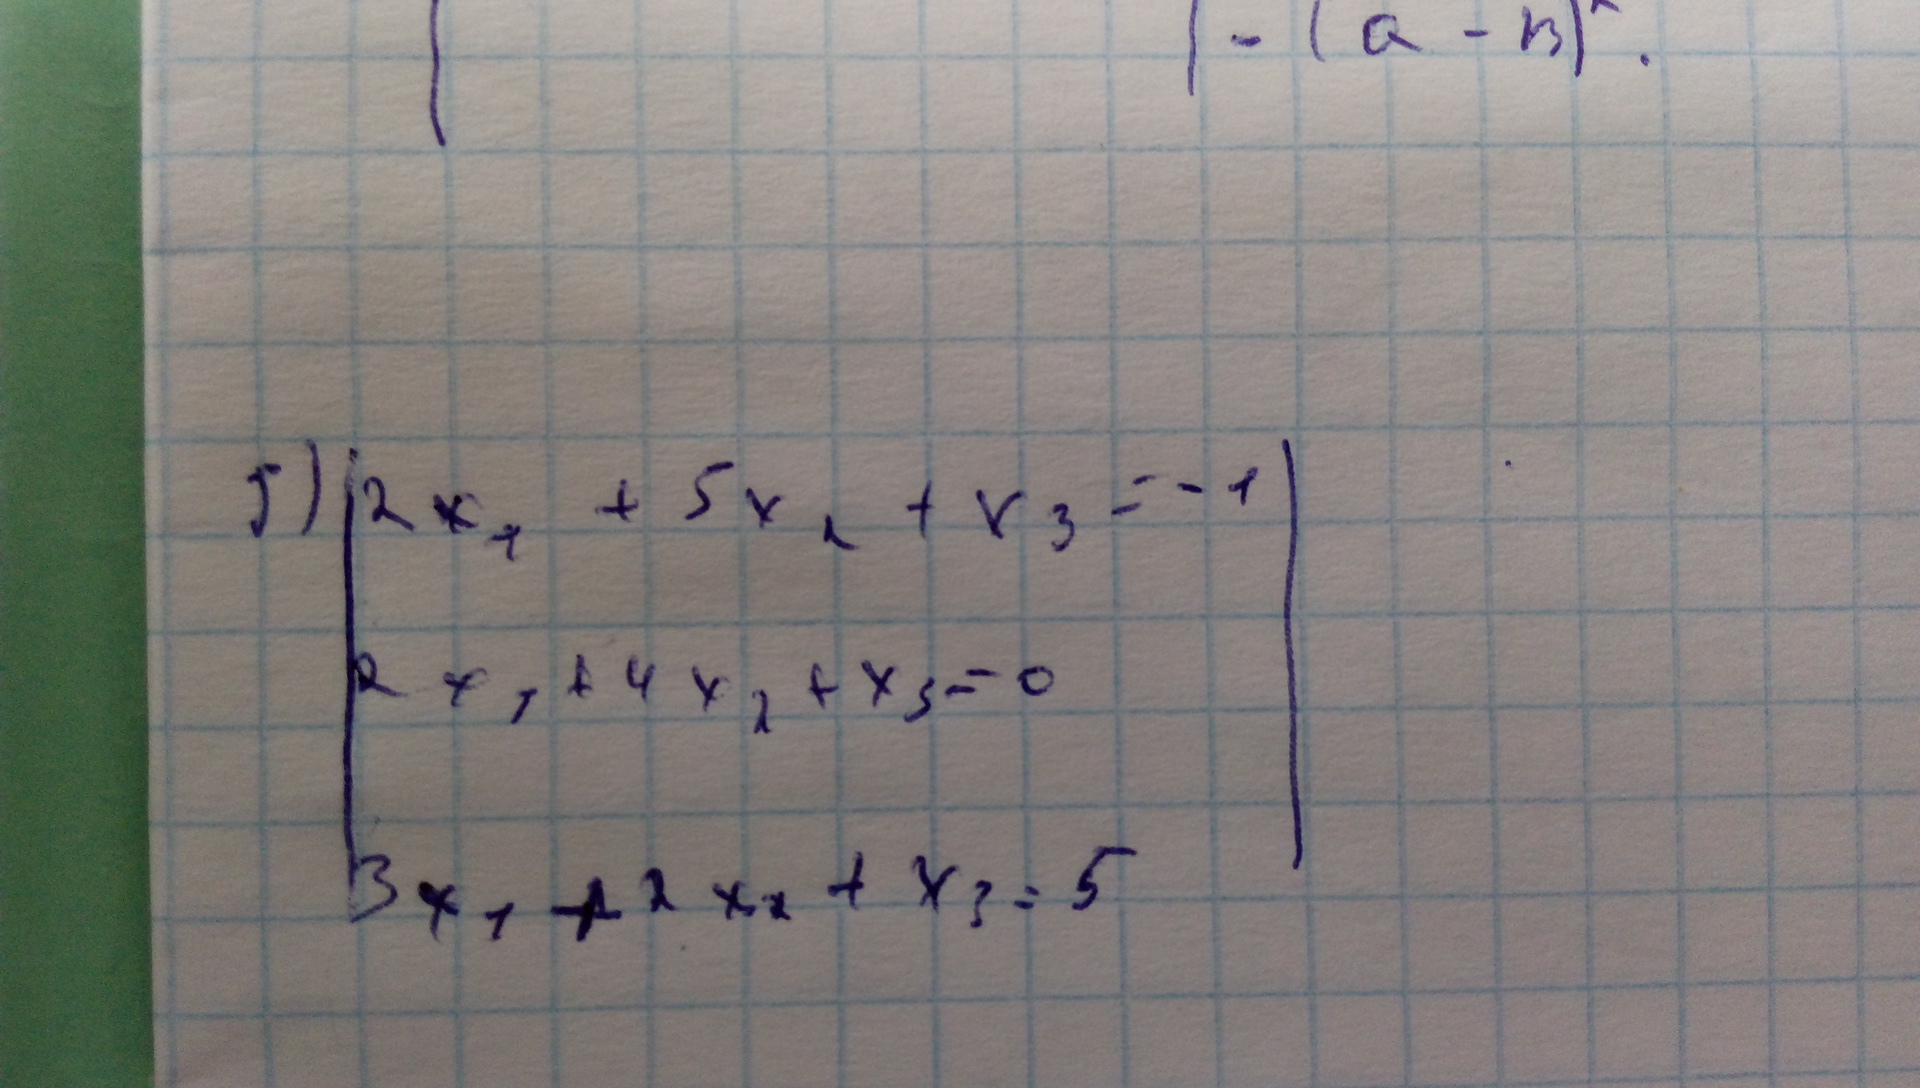 - (a - в)².
5) 2x₁ + 5x₂ + x₃ = -1
2x₁ + 4x₂ + x₃ = 0
3x₁ + 2x₂ + x₃ = 5